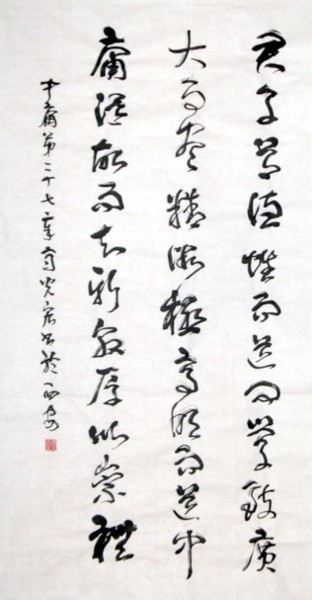 君子尊德性而道問學致廣
大而盡精微極高明而道中
庸溫故而知新敦厚以崇禮
中庸第二十七章書於西安